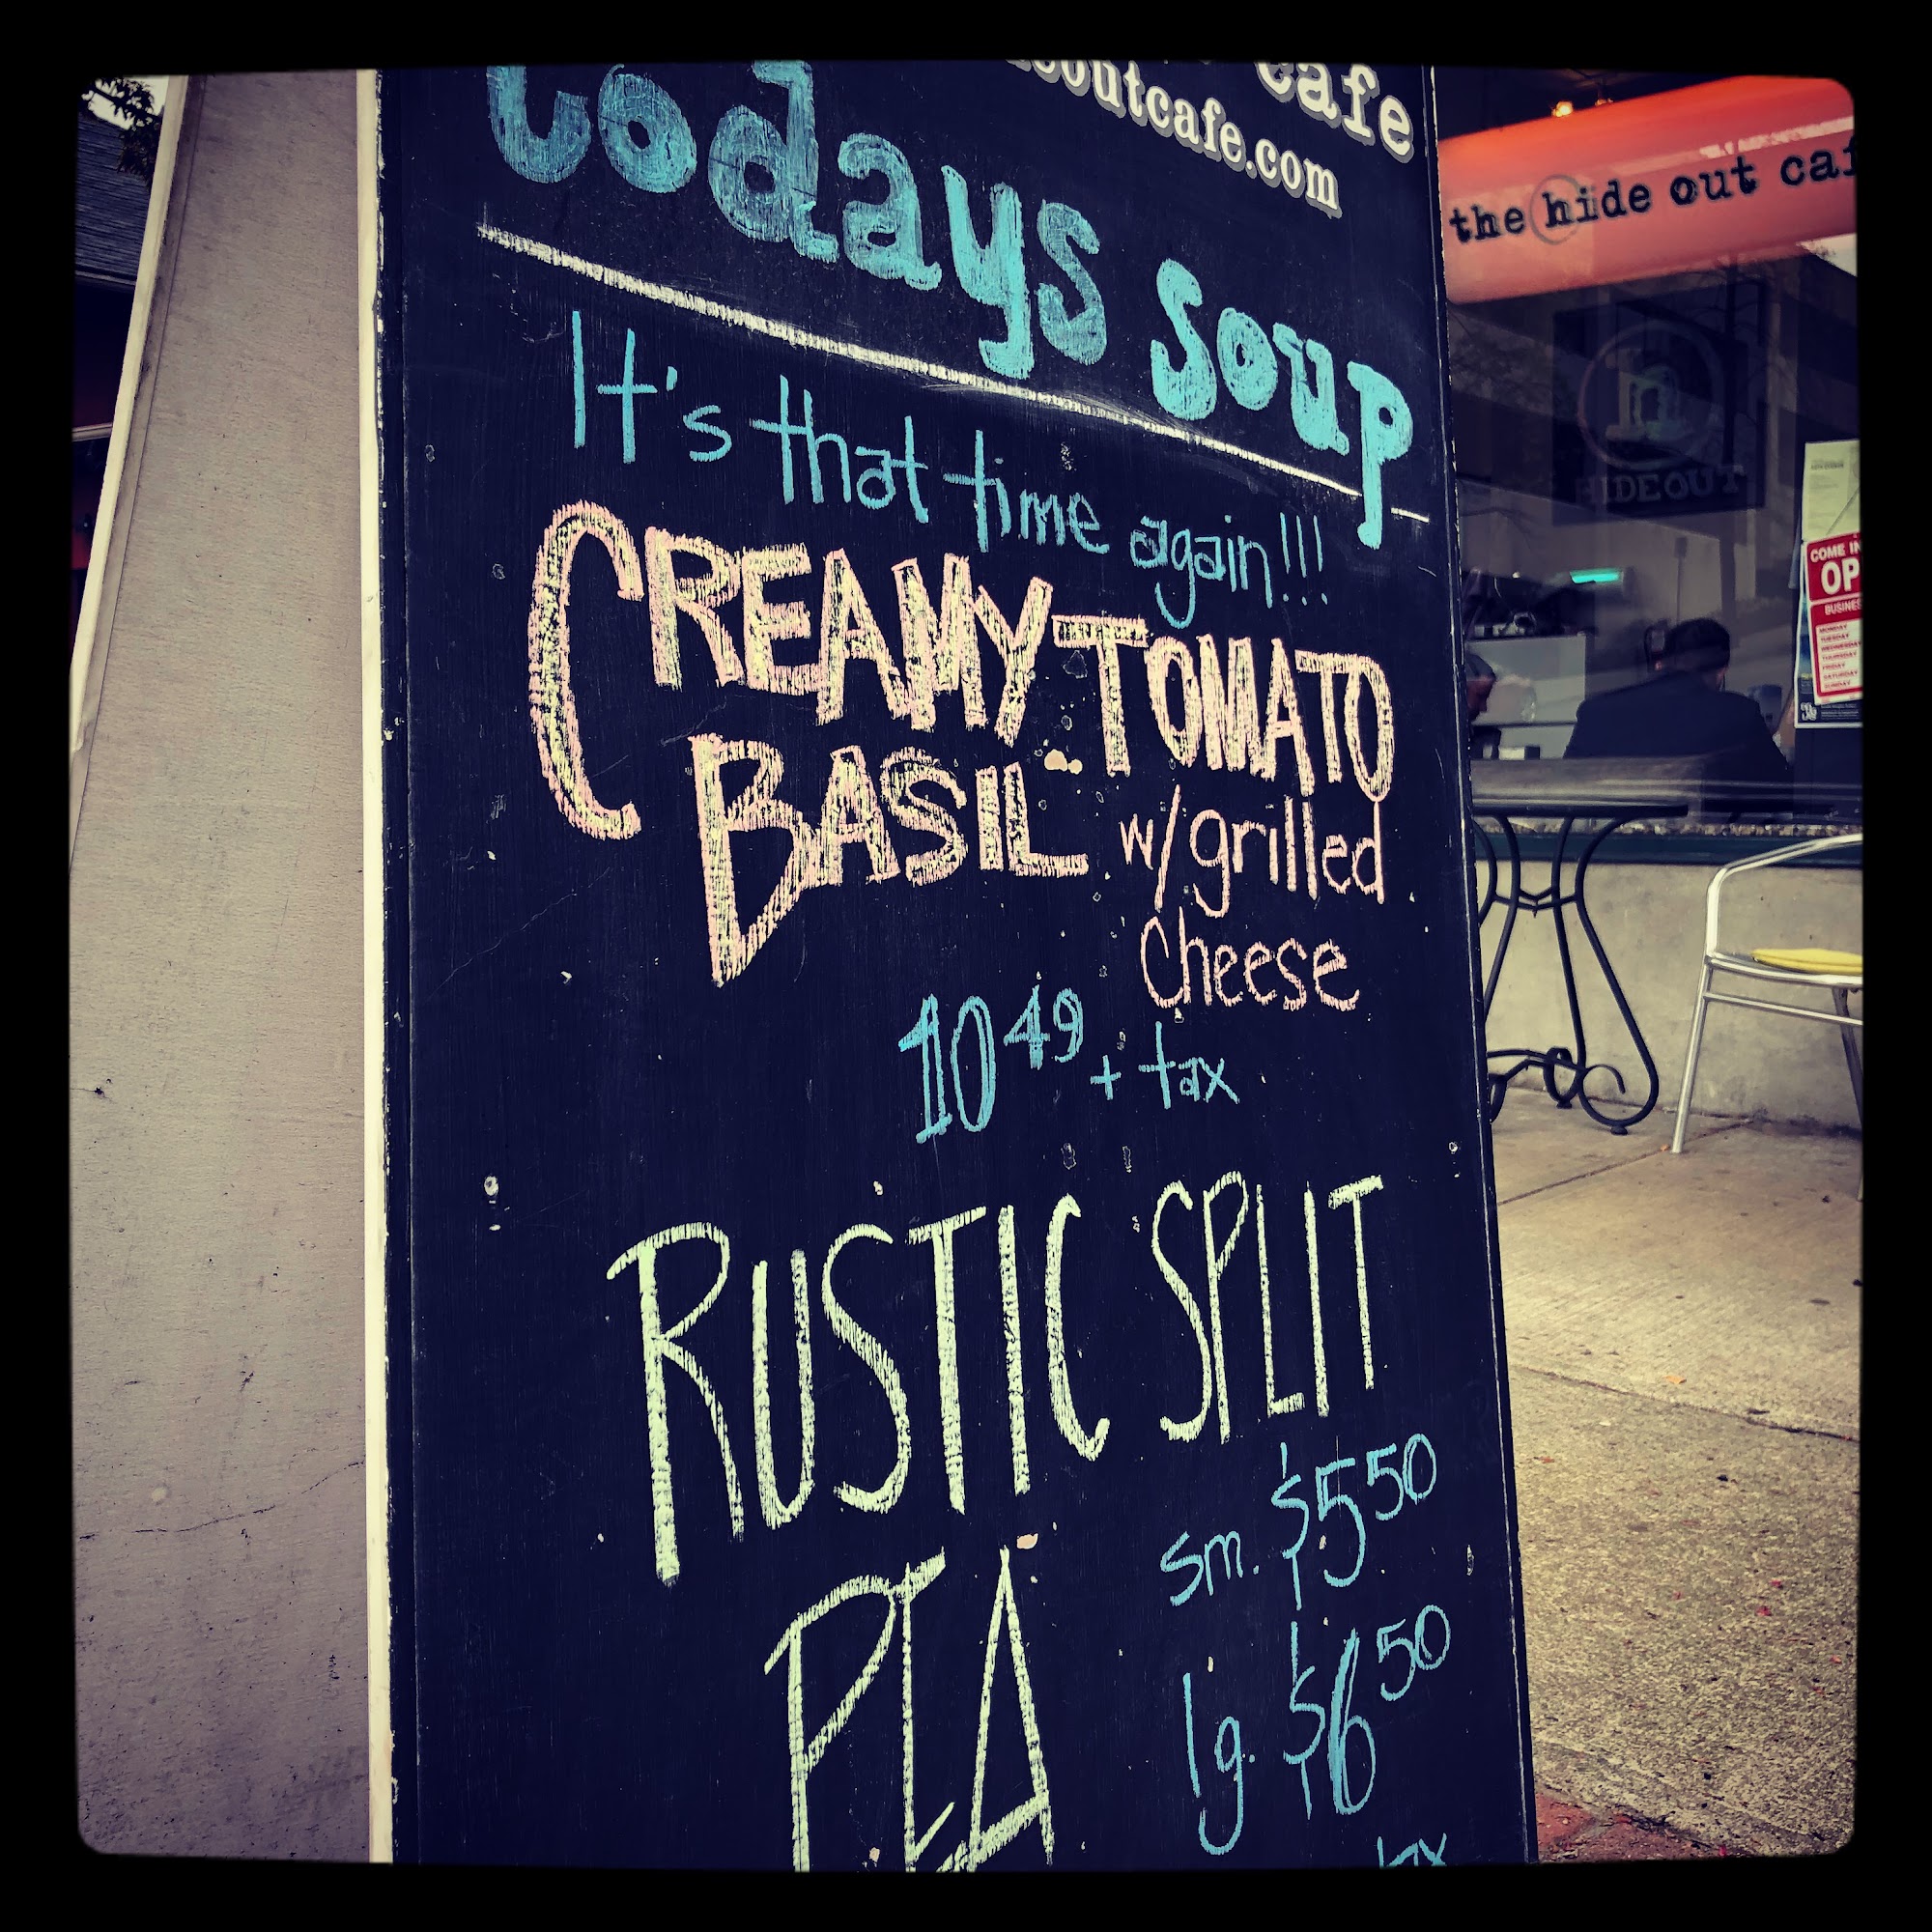 cafe
outcafe.com
todays soup
It's that time again!!!
CREAMY TOMATO
BASIL w/grilled
Cheese
10 49 + tax
RUSTIC SPLIT
sm. $5 50
PEA
lg. $6 50
tax
the hide out caf
HIDEOUT
COME IN
OP
BUSINE
MONDAY
TUESDAY
WEDNESDAY
THURSDAY
FRIDAY
SATURDAY
SUNDAY